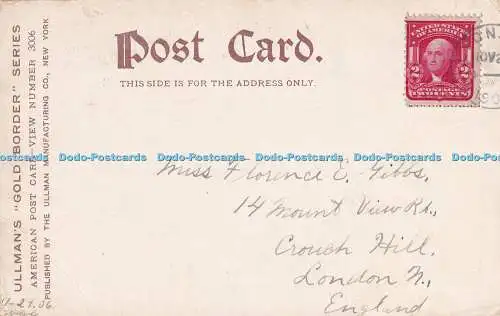 Post Card.
THIS SIDE IS FOR THE ADDRESS ONLY.
ULLMAN'S "GOLD BORDER" SERIES
AMERICAN POST CARD-VIEW NUMBER 3006
PUBLISHED BY THE ULLMAN MANUFACTURING CO., NEW YORK
UNITED STATES
OF AMERICA
2 2
POSTAGE
TWO CENTS
Dodo-Postcards Dodo-Postcards Dodo-Postcards Dodo-Postcards Dodo-Postcards Dodo-Postcards
Miss Florence E. Gibbs,
14 Mount View Rd.,
Crouch Hill,
London N.,
England